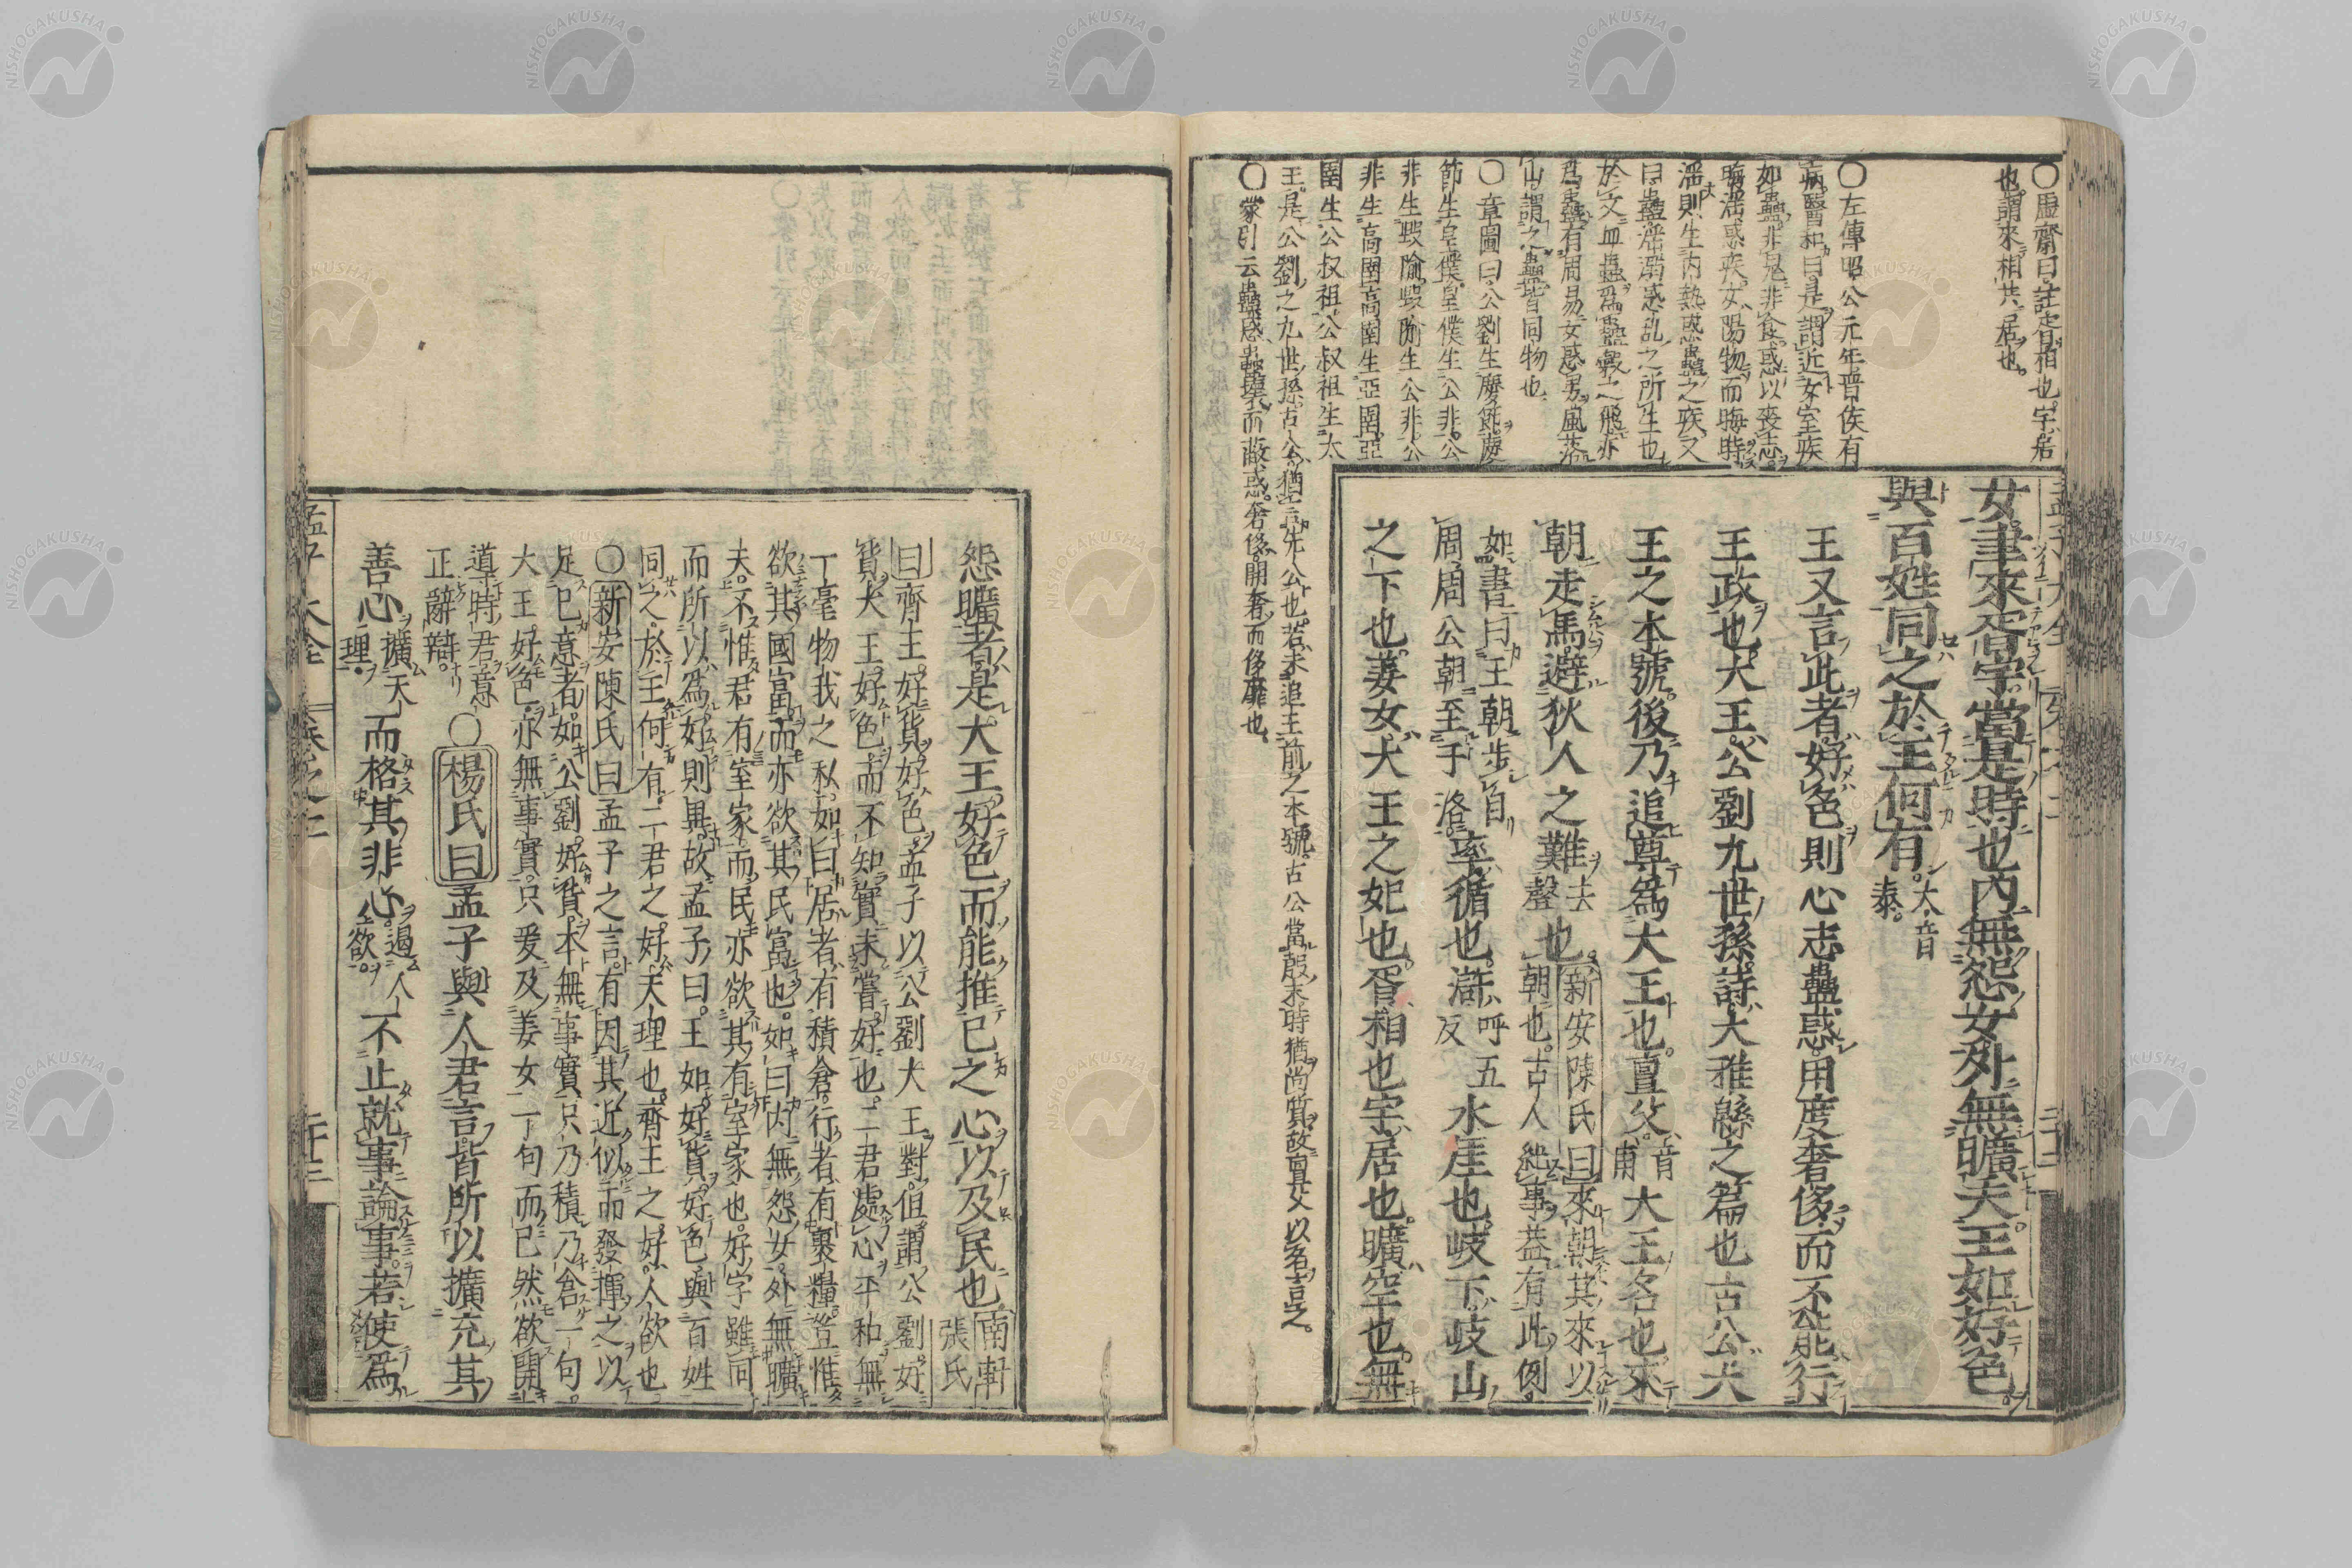 ○虛齋曰註胥相也字居
也謂來相共居也。
○左傳昭公元年晉侯有
病醫和曰是謂近女室疾
如蠱非鬼非食惑以喪志。
晦淫惑疾女陽物而晦時
淫則生內熱惑蠱之疾又
曰蠱淫溺惑亂之所生也
於文皿蟲爲蠱穀之飛亦
爲蠱有周易女惑男風落
山謂之蠱皆同物也
○章圖曰公劉生慶節慶
節生皇僕皇僕生公非公
非生毀隃毀隃生公非公
非生高圉高圉生亞圉亞
圉生公叔祖公叔祖生太
王是公劉之九世孫古公猶言先公也若未追王前之本號古公當殷末時猶尚質故亶父以名言之。
○蒙引云蠱惑蠱壞而蔽惑奢侈開奢而侈靡也。
女聿來胥宇當是時也內無怨女外無曠夫王如好色
與百姓同之於王何有大音泰。
王又言此者好色則心志蠱惑用度奢侈而不能行
王政也大王公劉九世孫詩大雅緜之篇也古公大
王之本號後乃追尊爲大王也亶父音甫大王名也來
朝走馬避狄人之難去聲也新安陳氏曰來朝其來以朝也古人紀事蓋有此例
如書曰王朝步自周周公朝至于洛率循也滸呼五反水涯也岐下岐山
之下也姜女大王之妃也胥相也宇居也曠空也無
孟子大全
怨曠者是大王好色而能推己之心以及民也南軒張氏
曰齊王好貨好色孟子以公劉大王對但謂公劉好
貨大王好色而不知實未嘗好也二君處心平和無
一毫物我之私如曰居者有積倉行者有裹糧豈惟
欲其國富而亦欲其民富也如曰內無怨女外無曠
夫不惟君有室家而民亦欲其有室家也好字雖同
而所以爲好則異故孟子曰王如好貨好色與百姓
同之於王何有二君之好天理也齊王之好人欲也
○新安陳氏曰孟子之言有因其近似而發揮之以
足己意者如公劉好貨本無事實只乃積乃倉一句
大王好色亦無事實只爰及姜女一句而已然欲開
導時君意正辭辯。○楊氏曰孟子與人君言皆所以擴充其
善心擴天理而格其非心遏人欲。不止就事論事若使爲
孟子大全